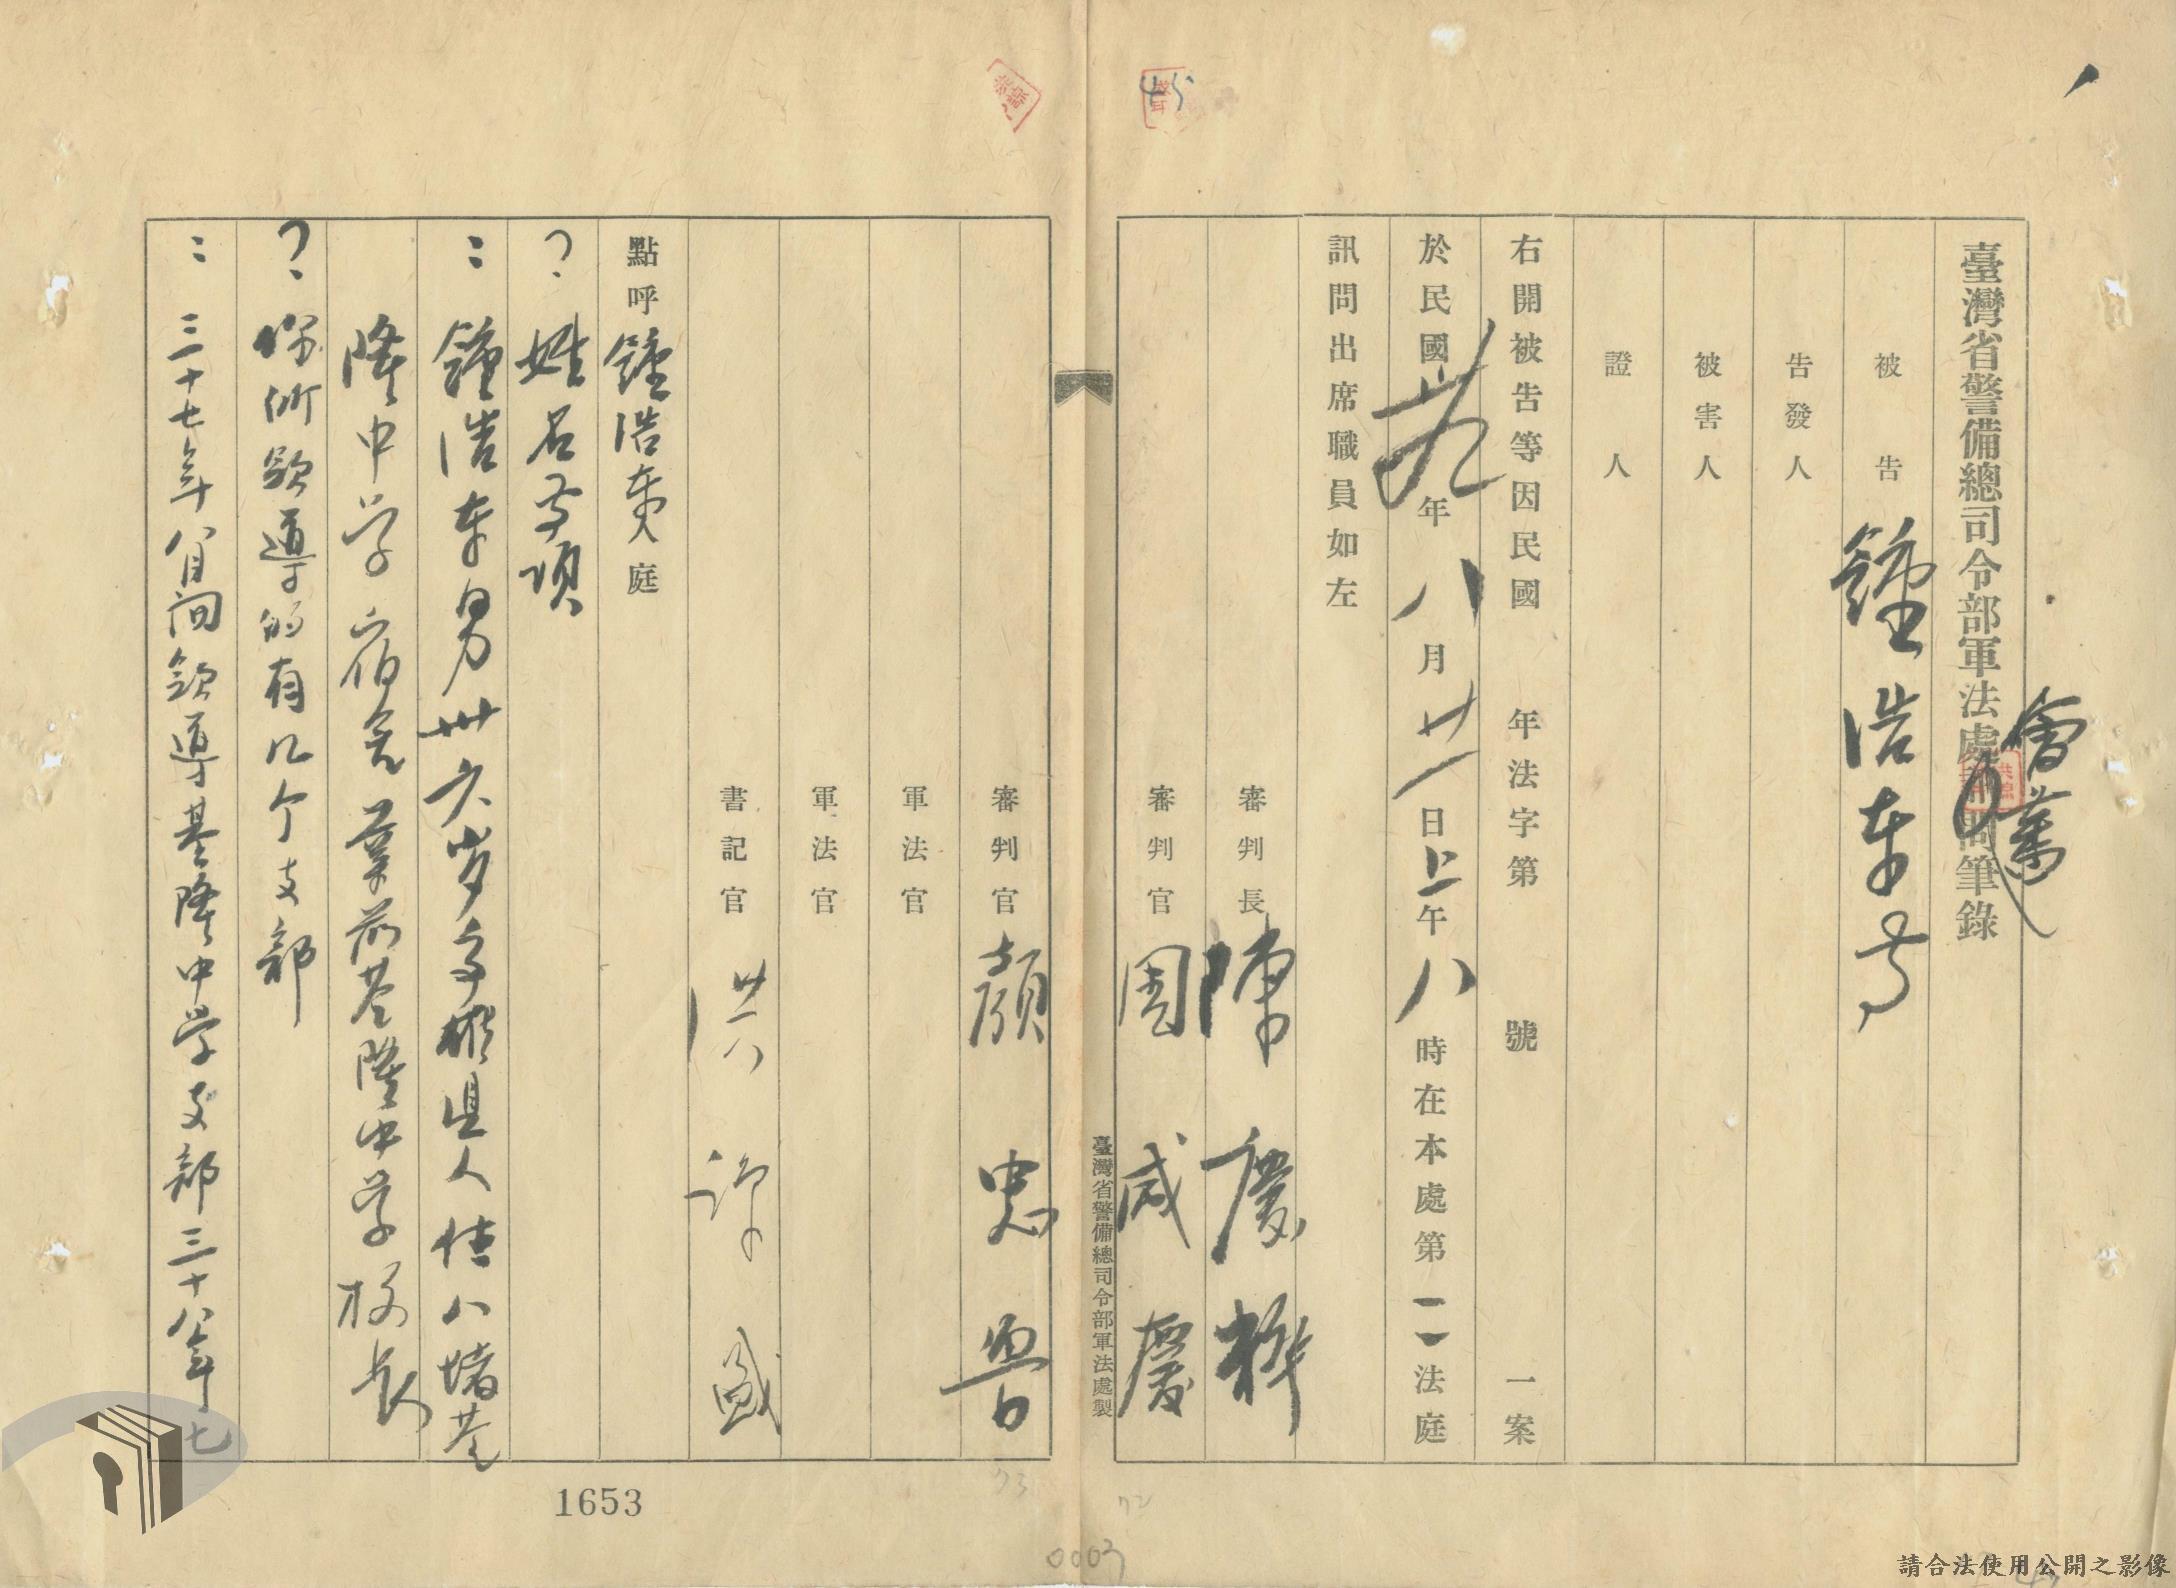 臺灣省警備總司令部軍法處訊問筆錄
會審
被告 鍾浩東 等
告發人
被害人
證人
右開被告等因民國 年法字第 號 一案
於民國卅九年八月廿一日上午八時在本處第二法庭
訊問出席職員如左
審判長 陳慶粹
審判官 周咸慶
臺灣省警備總司令部軍法處製
審判官 顏忠魯
軍法官
軍法官
書記官 洪源盛
點呼鍾浩東入庭
? 姓名等項
: 鍾浩東男卅六歲高雄县人住八堵基
隆中学宿舍業前基隆中学校長
? 你所領導的有几个支部
: 三十七年八月间領導基隆中学支部三十八年七
45
1653
73
72
0003
請合法使用公開之影像